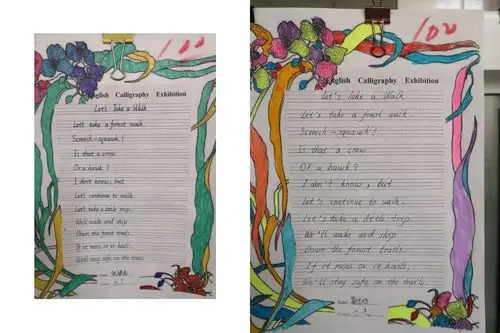 100
English Calligraphy Exhibition
Let's Take a Walk
Let's take a forest walk
Screech-squawk?
Is that a crow
Or a hawk?
I don't know, but
Let's continue to walk.
Let's take a little trip.
We'll walk and skip
Down the forest trails
If it rains or it hails.
We'll stay safe on the trails
Name:
Class: 3.1
100
English Calligraphy Exhibition
Let's Take a Walk
Let's take a forest walk.
Screech-squawk!
Is that a crow
Or a hawk?
I don't know, but
Let's continue to walk.
Let's take a little trip.
We'll wake and skip
Down the forest trails.
If it rains or it hails,
We'll stay safe on the trails
Name:
Class: 3.1